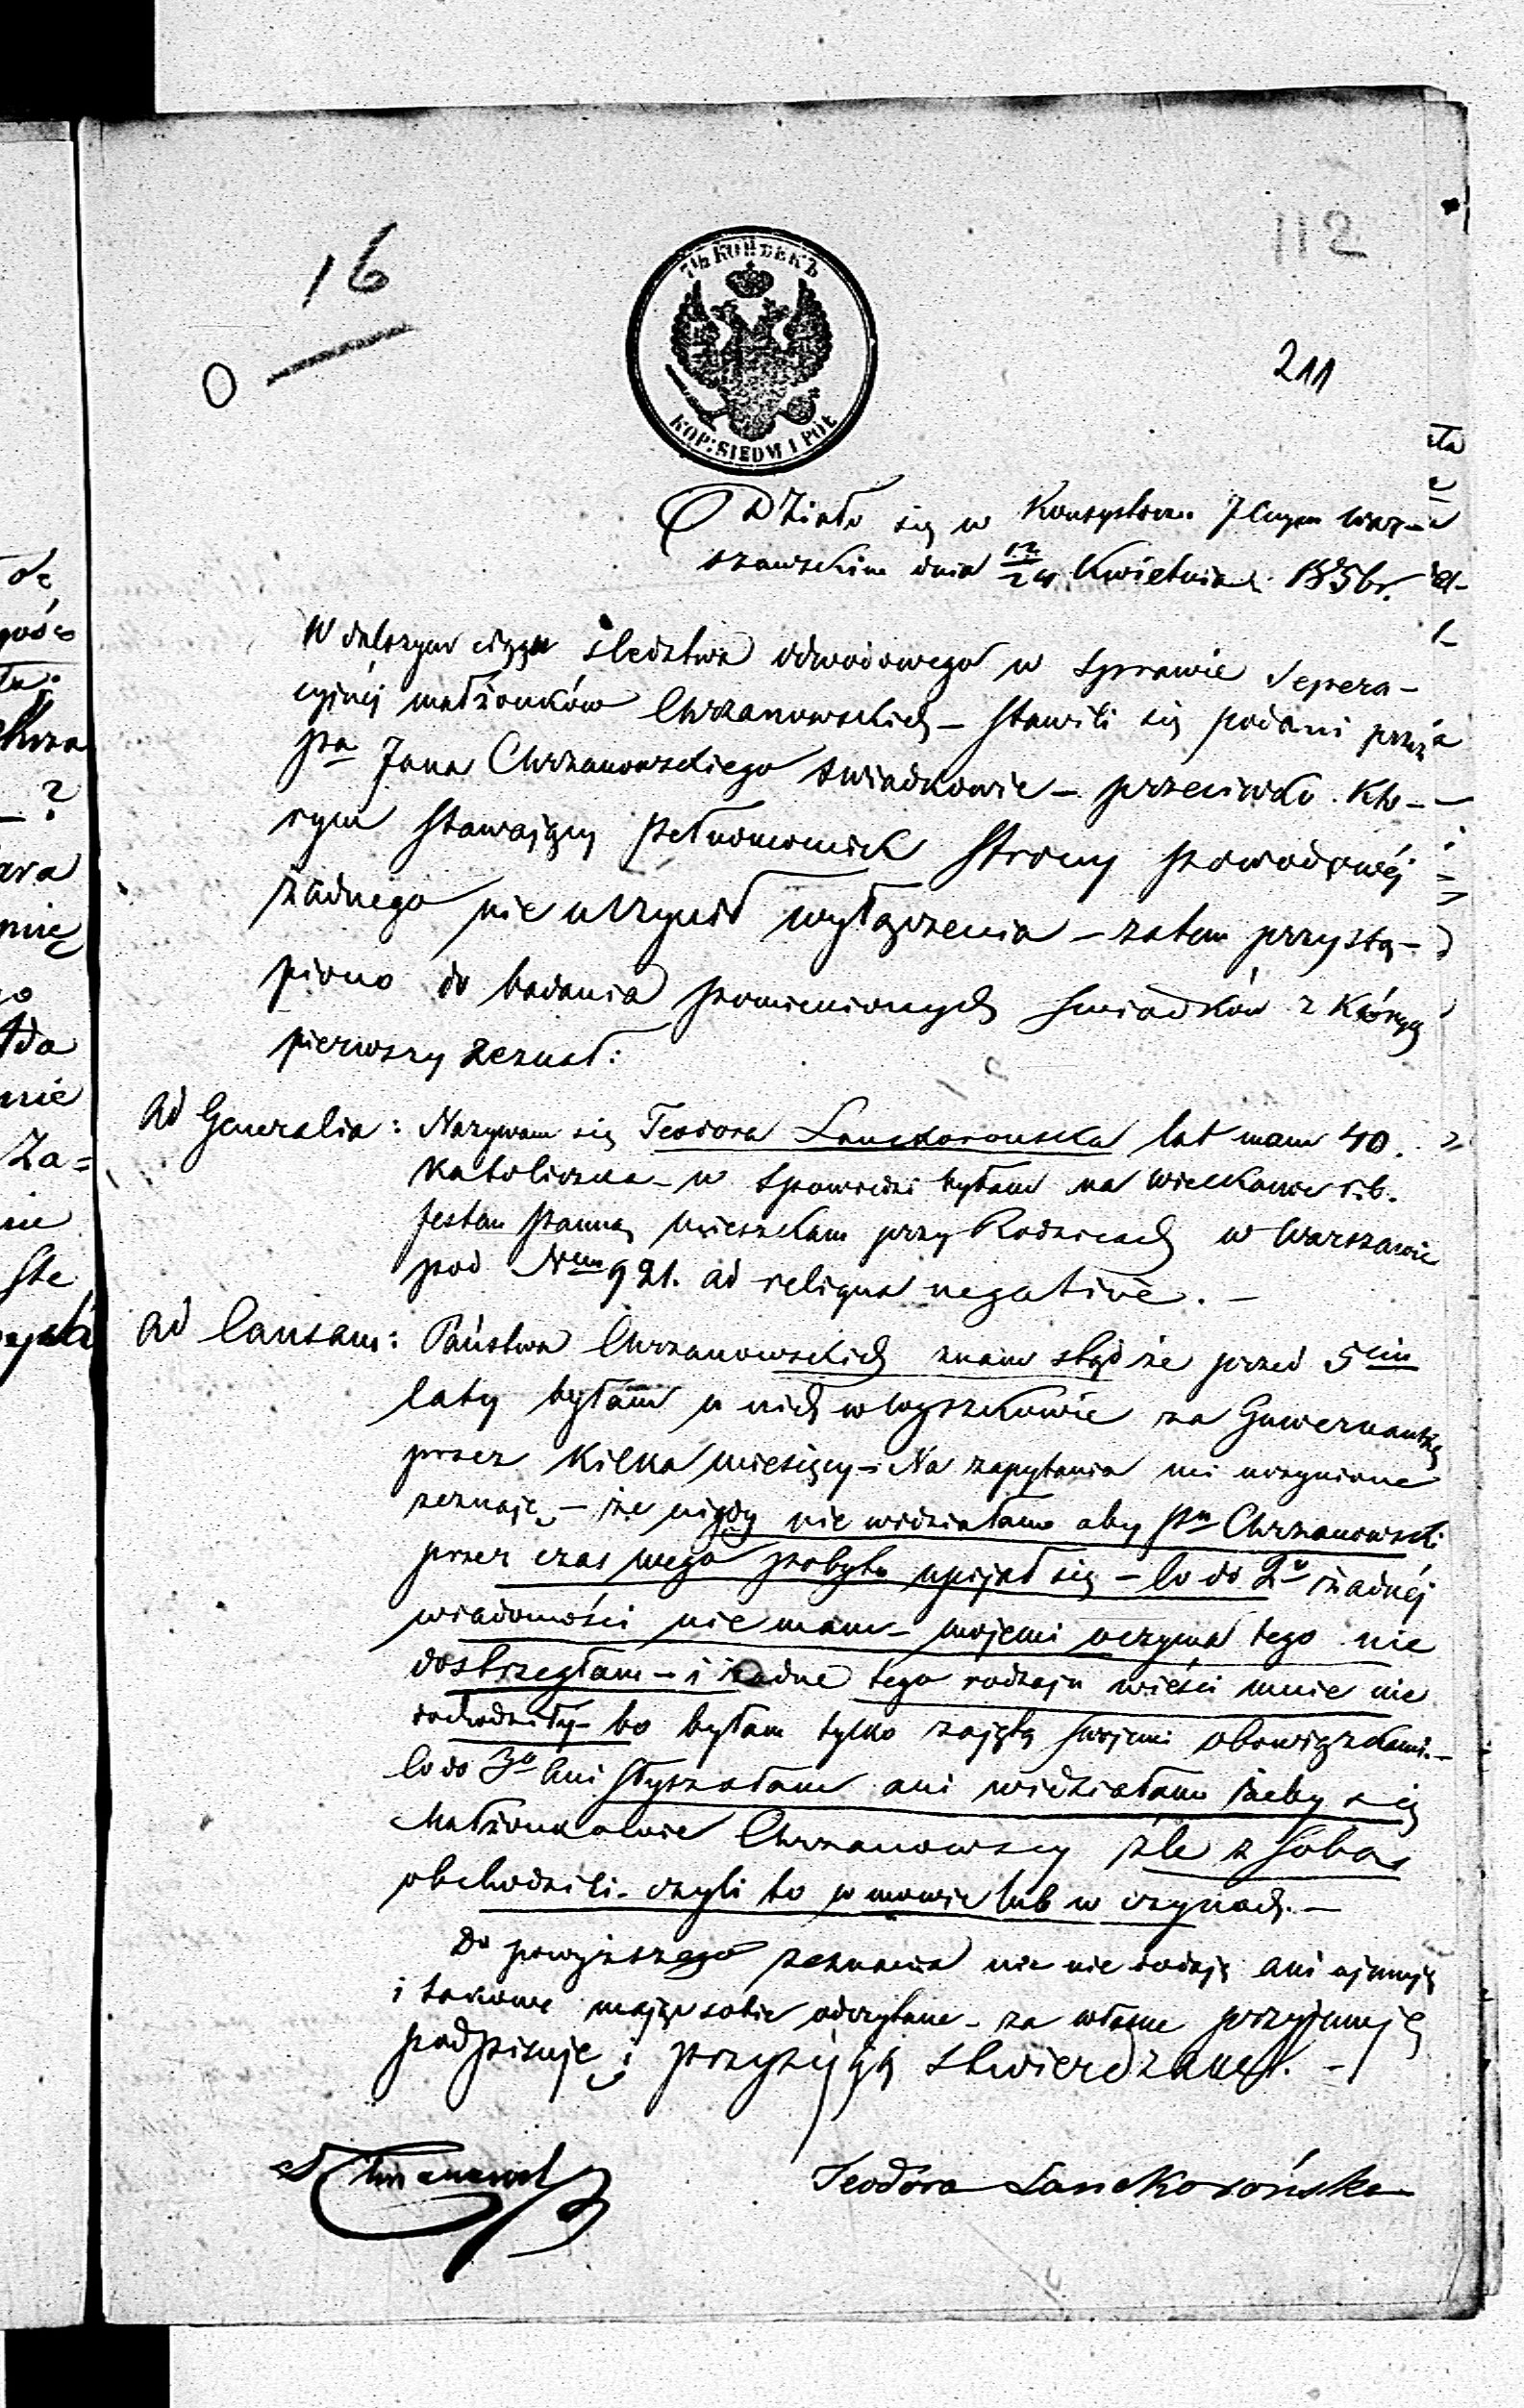 16
0
112
211
7½ КОПѢЕКЪ
KOP: SIEDM I PÓŁ
Działo się w Konsystorzu Jlnym War-
szawskim dnia 12/24 Kwietnia 1856 r.
W dalszym ciągu śledztwa odwodowego w sprawie Separa-
cyjnéj małżonków Chrzanowskich – stawili się podani przez
Pa Jana Chrzanowskiego świadkowie – przeciwko któ-
rym stawający Pełnomocnik Strony powodowéj
żadnego nie uczynił wyłączenia – zatem przystą-
piono do badania pomienionych świadków z których
pierwszy zeznał:
Ad Generalia: Nazywam się Teodora Lanckorońska lat mam 40.
Katoliczka – w spowiedzi byłam na Wielkanoc r.b.
jestem Panną, mieszkam przy Rodzicach w Warszawie
pod Nrem 921. ad reliqua negative. –
Ad Causam: Państwa Chrzanowskich znam stąd że przed 5ciu
laty byłam u nich w Wyszkowie za Guwernantkę
przez kilka miesięcy – Na zapytania mi uczynione
zeznaję – że nigdy nie widziałam aby Pn Chrzanowski
przez czas mego pobytu upijał się – Co do 2o żadnéj
wiadomości nie mam – mojemi oczyma tego nie
dostrzegłam – i żadne tego rodzaju wieści mnie nie
dochodziły – bo byłam tylko zajętą swojemi obowiązkami. –
Co do 3o Ani słyszałam ani widziałam żeby się
Małżonkowie Chrzanowscy źle z sobą
obchodzili – czyli to w mowie lub w czynach. –
Do powyższego zeznania nic nie dodaję ani ujmuję
i takowe mając sobie odczytane – za własne przyjmuję
podpisuję i przysięgą stwierdzam. –
Teodora Lanckorońska